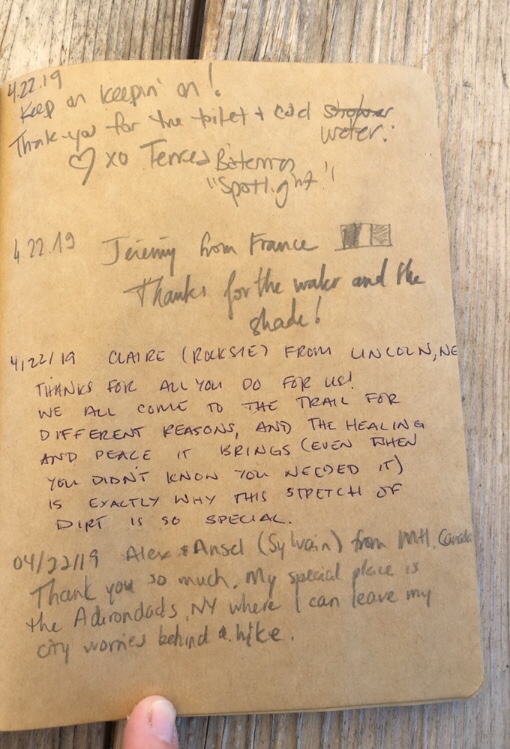 4.22.19
Keep on keepin' on!
Thank you for the toilet + cold shower
water.
xo Bateman
"Spotlight"
4.22.19 Jeremy from France
Thanks for the water and the
shade!
4/22/19 CLAIRE (ROCKSIE) FROM LINCOLN, NE
THANKS FOR ALL YOU DO FOR US!
WE ALL COME TO THE TRAIL FOR
DIFFERENT REASONS, AND THE HEALING
AND PEACE IT BRINGS (EVEN WHEN
YOU DIDN'T KNOW YOU NEEDED IT)
IS EXACTLY WHY THIS STRETCH OF
DIRT IS SO SPECIAL.
04/22/19 Alex & Ansel (Sylvain) from Mtl, Canada
Thank you so much. My special place is
the Adirondads, NY where I can leave my
city worries behind & hike.